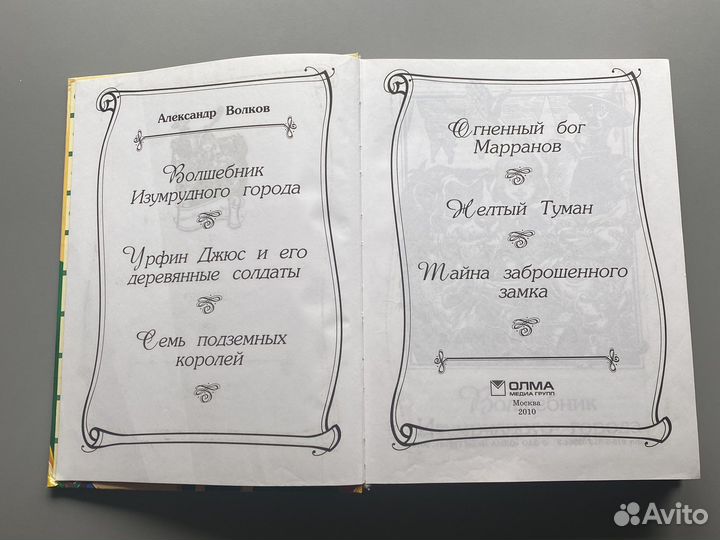 Александр Волков
Волшебник
Изумрудного города
Урфин Джюс и его
деревянные солдаты
Семь подземных
королей
Огненный бог
Марранов
Желтый Туман
Тайна заброшенного
замка
ОЛМА
МЕДИА ГРУПП
Москва
2010
Avito